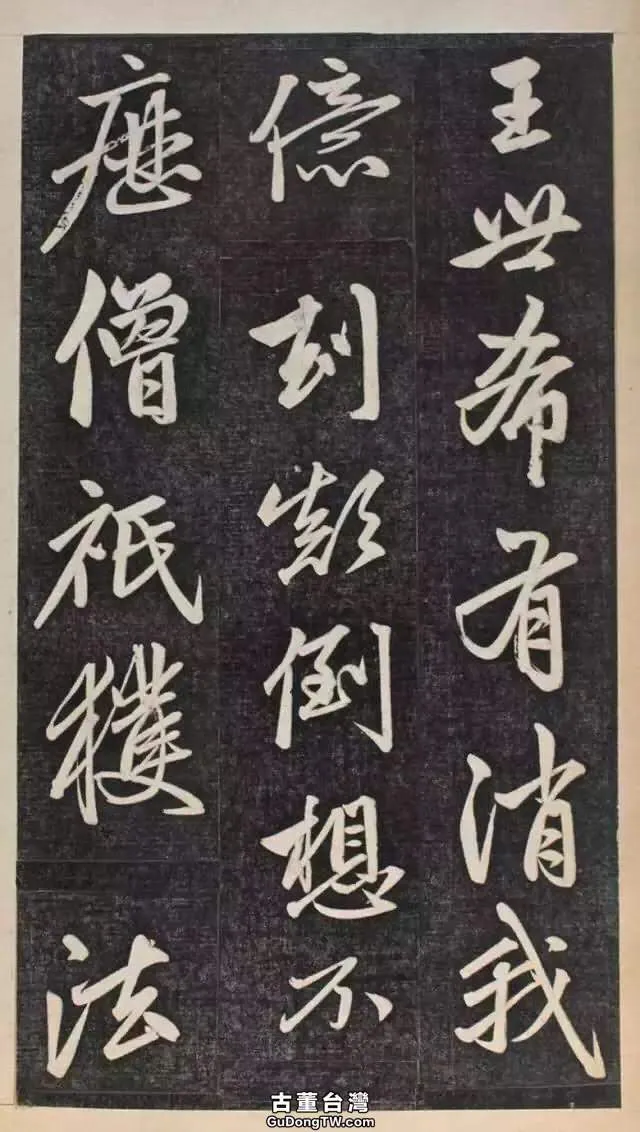 王世希有消我
億刧顛倒想不
歷僧祇穫法
古董台灣
GuDongTW.com